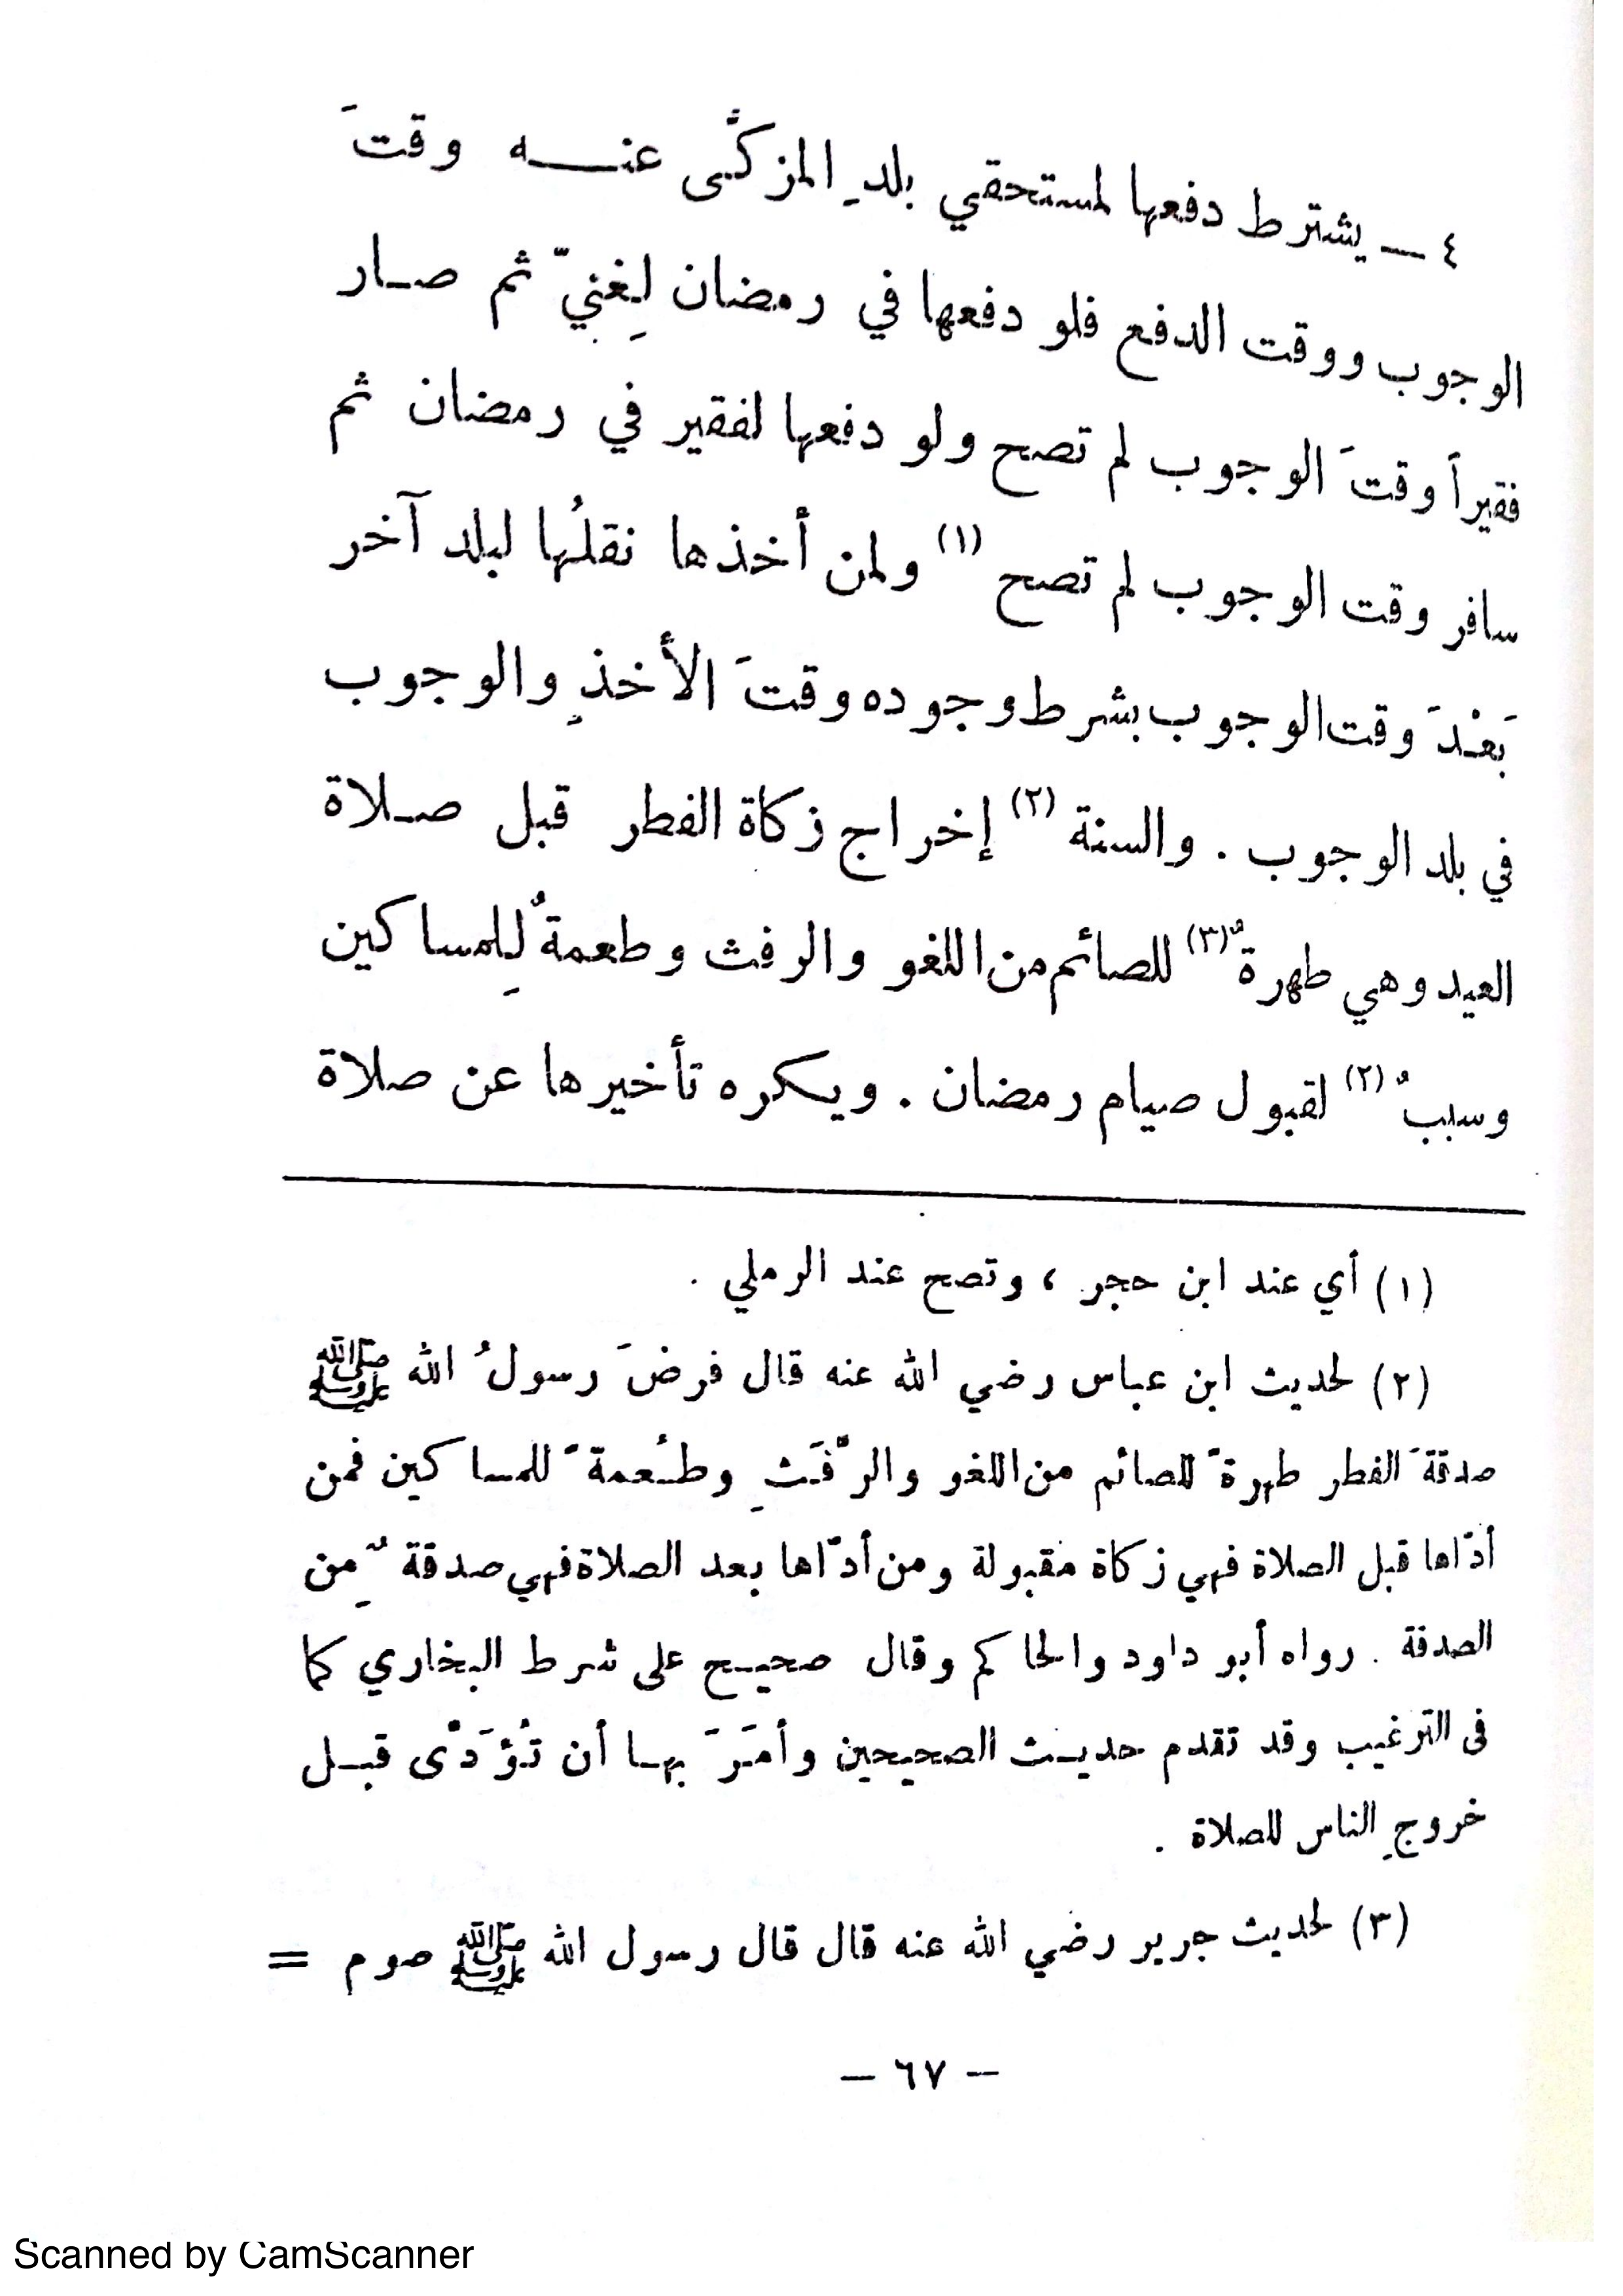 ٤ ــ يشترط دفعها لمستحقي بلدِ المزكَّى عنـــه وقتَ
الوجوب ووقت الدفع فلو دفعها في رمضان لِغنيّ ثم صـار
فقيراً وقتَ الوجوب لم تصح ولو دفعها لفقير في رمضان ثم
سافر وقت الوجوب لم تصح (١) ولمن أخذها نقلُها لبلد آخر
بَعْدَ وقت الوجوب بشرط وجوده وقتَ الأخذِ والوجوب
في بلد الوجوب . والسنة (٢) إخراج زكاة الفطر قبل صـلاة
العيد وهي طهرةٌ (٣) للصائم من اللغو والرفث وطعمةٌ لِلمساكين
وسببٌ (٢) لقبول صيام رمضان . ويكره تأخيرها عن صلاة
(١) أي عند ابن حجر ، وتصح عند الرملي .
(٢) لحديث ابن عباس رضي الله عنه قال فرضَ رسولُ الله ﷺ
صدقةَ الفطر طهرةً للصائم من اللغو والرَّفَثِ وطُعمةً للمساكين فمن
أدّاها قبل الصلاة فهي زكاة مقبولة ومن أدّاها بعد الصلاة فهي صدقةٌ مِن
الصدقة . رواه أبو داود والحاكم وقال صحيـح على شرط البخاري كما
فى الترغيب وقد تقدم حديـث الصحيحين وأمَرَ بهـا أن تُؤَدَّى قبـل
خروجِ الناس للصلاة .
(٣) لحديث جرير رضي الله عنه قال قال رسول الله ﷺ صوم =
– ٦٧ –
Scanned by CamScanner